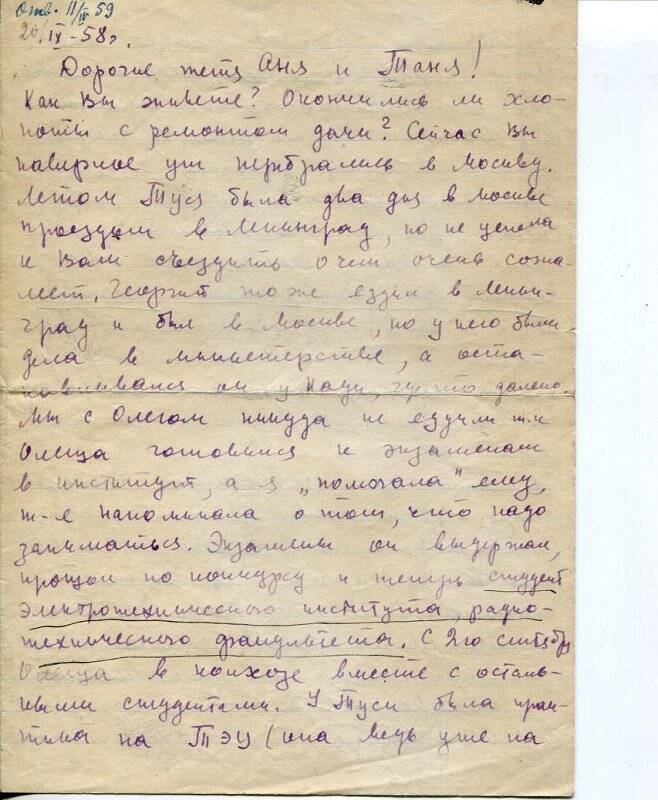 Отв. 11/IV 59
20/IX-58г.
Дорогие тётя Аня и Таня!
Как Вы живёте? Окончились ли хло-
поты с ремонтом дачи? Сейчас Вы
наверное уж перебрались в Москву.
Летом Туся была два дня в Москве
проездом в Ленинград, но не успела
к Вам съездить о чем очень сожа-
леет. Георгий тоже ездил в Ленин-
град и был в Москве, но у него были
дела в министерстве, а оста-
навливался он у Нади, где-то далеко.
Мы с Олегом никуда не ездили т.к
Олеша готовился к экзаменам
в институт, а я „помогала" ему,
т-е напоминала о том, что надо
заниматься. Экзамены он выдержал,
прошел по конкурсу и теперь студент
электротехнического института, радио-
технического факультета. С 2го сентября
в колхозе вместе с осталь-
ными студентами. У Туси была прак-
тика на ТЭЦ (она ведь уже на